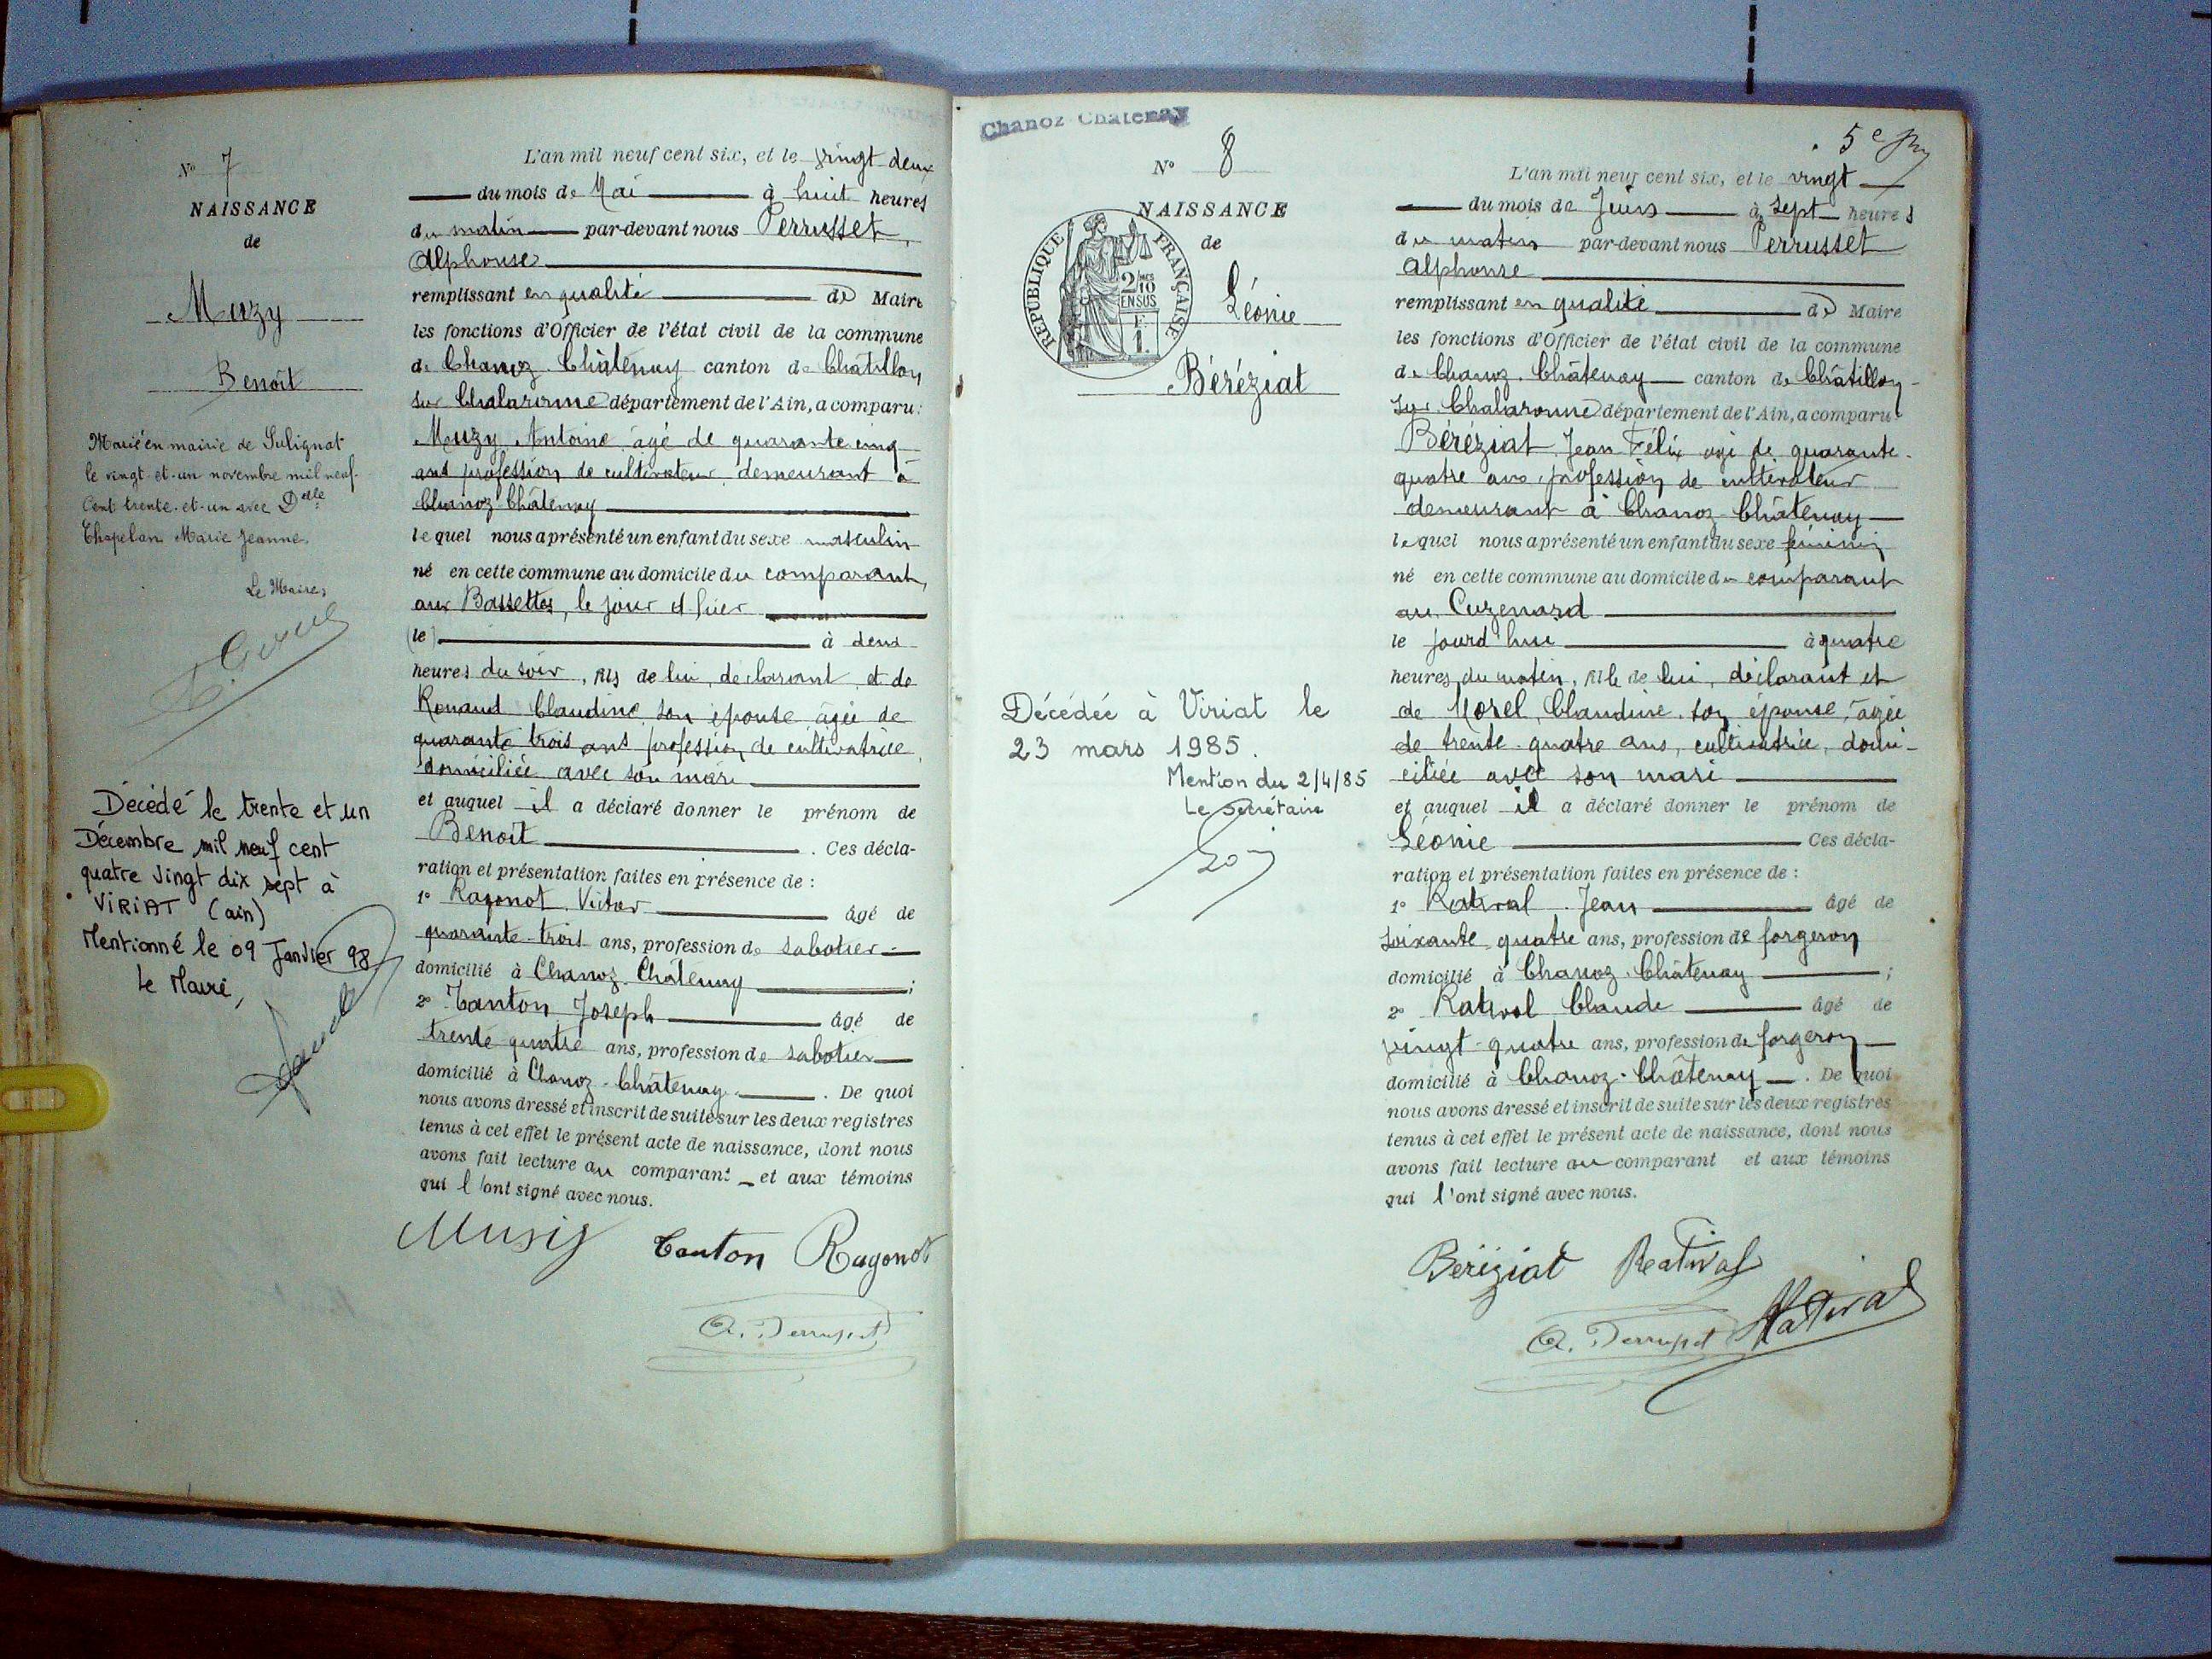 N° 7
NAISSANCE
de
Muzy
Benoît
Marié en mairie de Sulignat
le vingt-et-un novembre mil neuf-
Cent trente-et-un avec Delle
Chapelan Marie Jeanne.
Le Maire,
Décédé le trente et un
Décembre mil neuf cent
quatre vingt dix sept à
VIRIAT (ain)
Mentionné le 09 Janvier 98
Le Maire,
L'an mil neuf cent six, et le vingt deux
du mois de Mai à huit heures
du matin par-devant nous Perrusset
Alphonse
remplissant en qualité de Maire
les fonctions d'Officier de l'état civil de la commune
de Chanoz-Châtenay canton de Châtillon
sur Chalaronne département de l'Ain, a comparu :
Muzy Antoine âgé de quarante cinq
ans profession de cultivateur demeurant à
Chanoz-Châtenay
lequel nous a présenté un enfant du sexe masculin
né en cette commune au domicile du comparant,
aux Bassettes, le jour d'hier
(le) à deux
heures du soir, fils de lui, déclarant, et de
Renaud Claudine son épouse âgée de
quarante trois ans profession de cultivatrice
domiciliée avec son mari
et auquel il a déclaré donner le prénom de
Benoît . Ces décla-
ration et présentation faites en présence de :
1° Ragonot Victor âgé de
quarante-trois ans, profession de sabotier
domicilié à Chanoz-Châtenay ;
2° Tanton Joseph âgé de
trente quatre ans, profession de sabotier
domicilié à Chanoz-Châtenay . De quoi
nous avons dressé et inscrit de suite sur les deux registres
tenus à cet effet le présent acte de naissance, dont nous
avons fait lecture au comparant et aux témoins
qui l'ont signé avec nous.
Musiy Tanton Ragonot
A. Perrusset
Chanoz-Chatenay
N° 8
NAISSANCE
de
Léonie
Béréziat
REPUBLIQUE FRANÇAISE
2/10 MES
EN SUS
F.
1.
Décédée à Viriat le
23 mars 1985.
Mention du 2/4/85
Le Secrétaire
5e
L'an mil neuf cent six, et le vingt
du mois de Juin à sept heures
du matin par-devant nous Perrusset
Alphonse
remplissant en qualité de Maire
les fonctions d'Officier de l'état civil de la commune
de Chanoz-Châtenay canton de Châtillon-
sur Chalaronne département de l'Ain, a comparu
Béréziat Jean Félix âgé de quarante-
quatre ans, profession de cultivateur
demeurant à Chanoz-Châtenay
lequel nous a présenté un enfant du sexe féminin
né en cette commune au domicile du comparant
au Cuzenard
le jourd'hui à quatre
heures du matin, fille de lui, déclarant et
de Morel, Claudine, son épouse, âgée
de trente-quatre ans, cultivatrice, domi-
ciliée avec son mari
et auquel il a déclaré donner le prénom de
Léonie Ces décla-
ration et présentation faites en présence de :
1° Ratival Jean âgé de
soixante quatre ans, profession de forgeron
domicilié à Chanoz-Châtenay ;
2° Rativol Claude âgé de
vingt-quatre ans, profession de forgeron
domicilié à Chanoz-Châtenay . De quoi
nous avons dressé et inscrit de suite sur les deux registres
tenus à cet effet le présent acte de naissance, dont nous
avons fait lecture au comparant et aux témoins
qui l'ont signé avec nous.
Béréziat Rativas
A. Perrusset Rativas